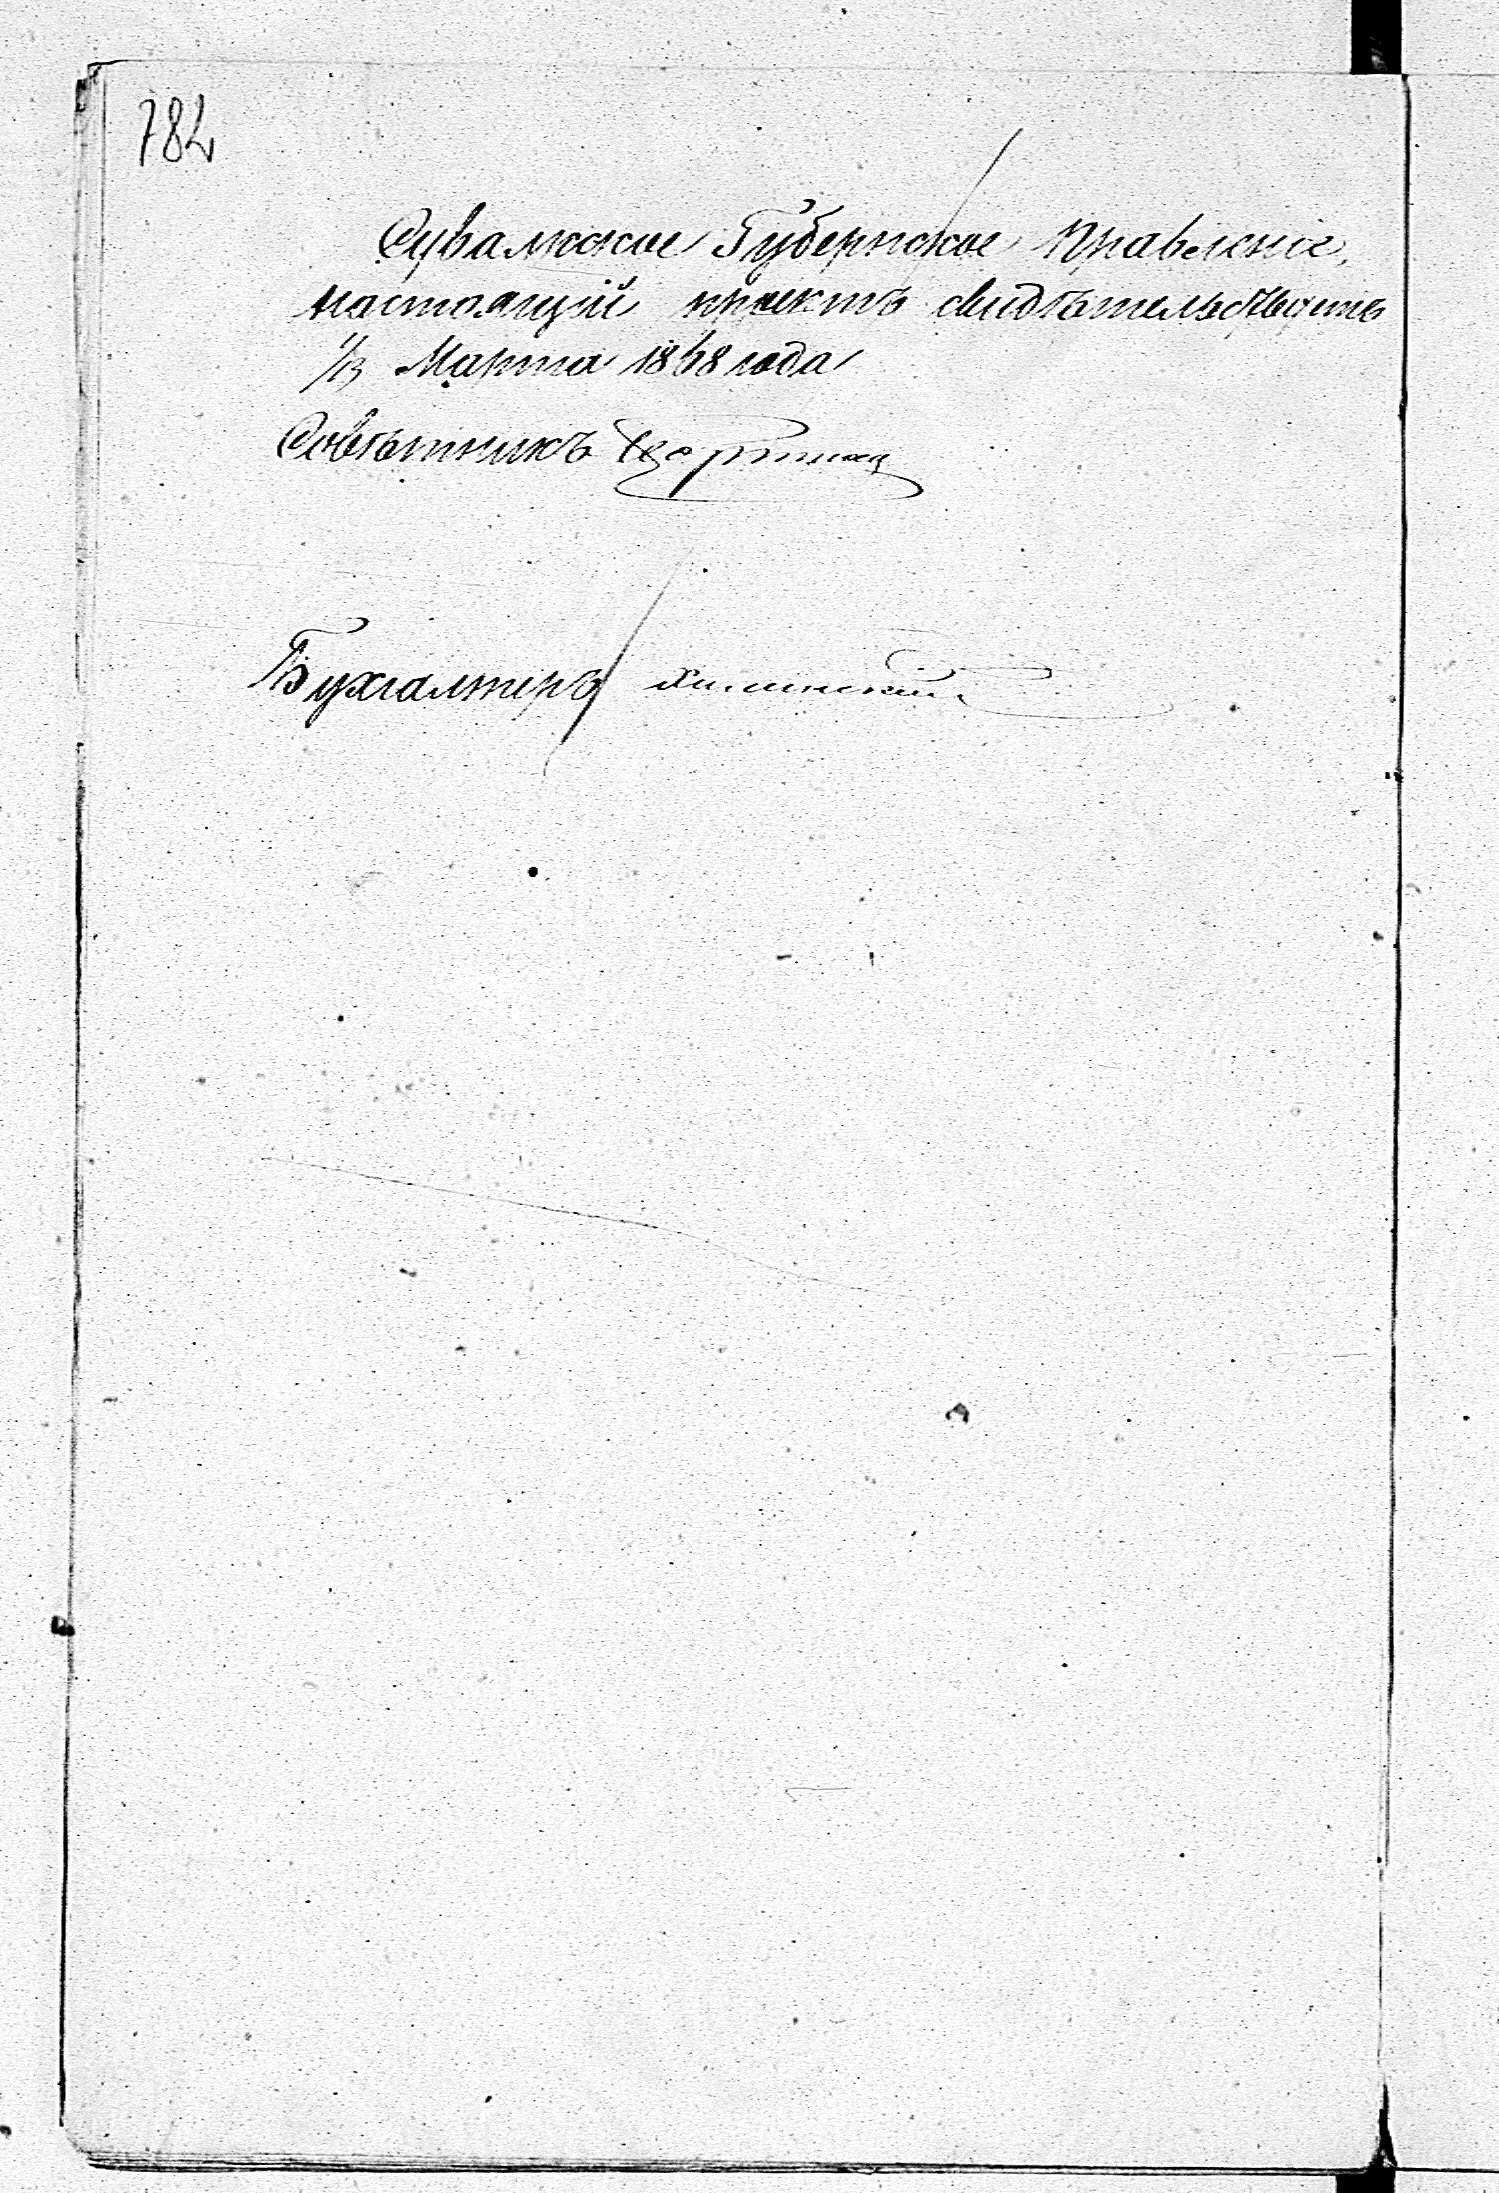 782
Сувалкское Губернское Правленіе,
настоящій проектъ свидѣтельствуетъ
1/13 Марта 1868 года
Совѣтникъ
Бухгалтеръ